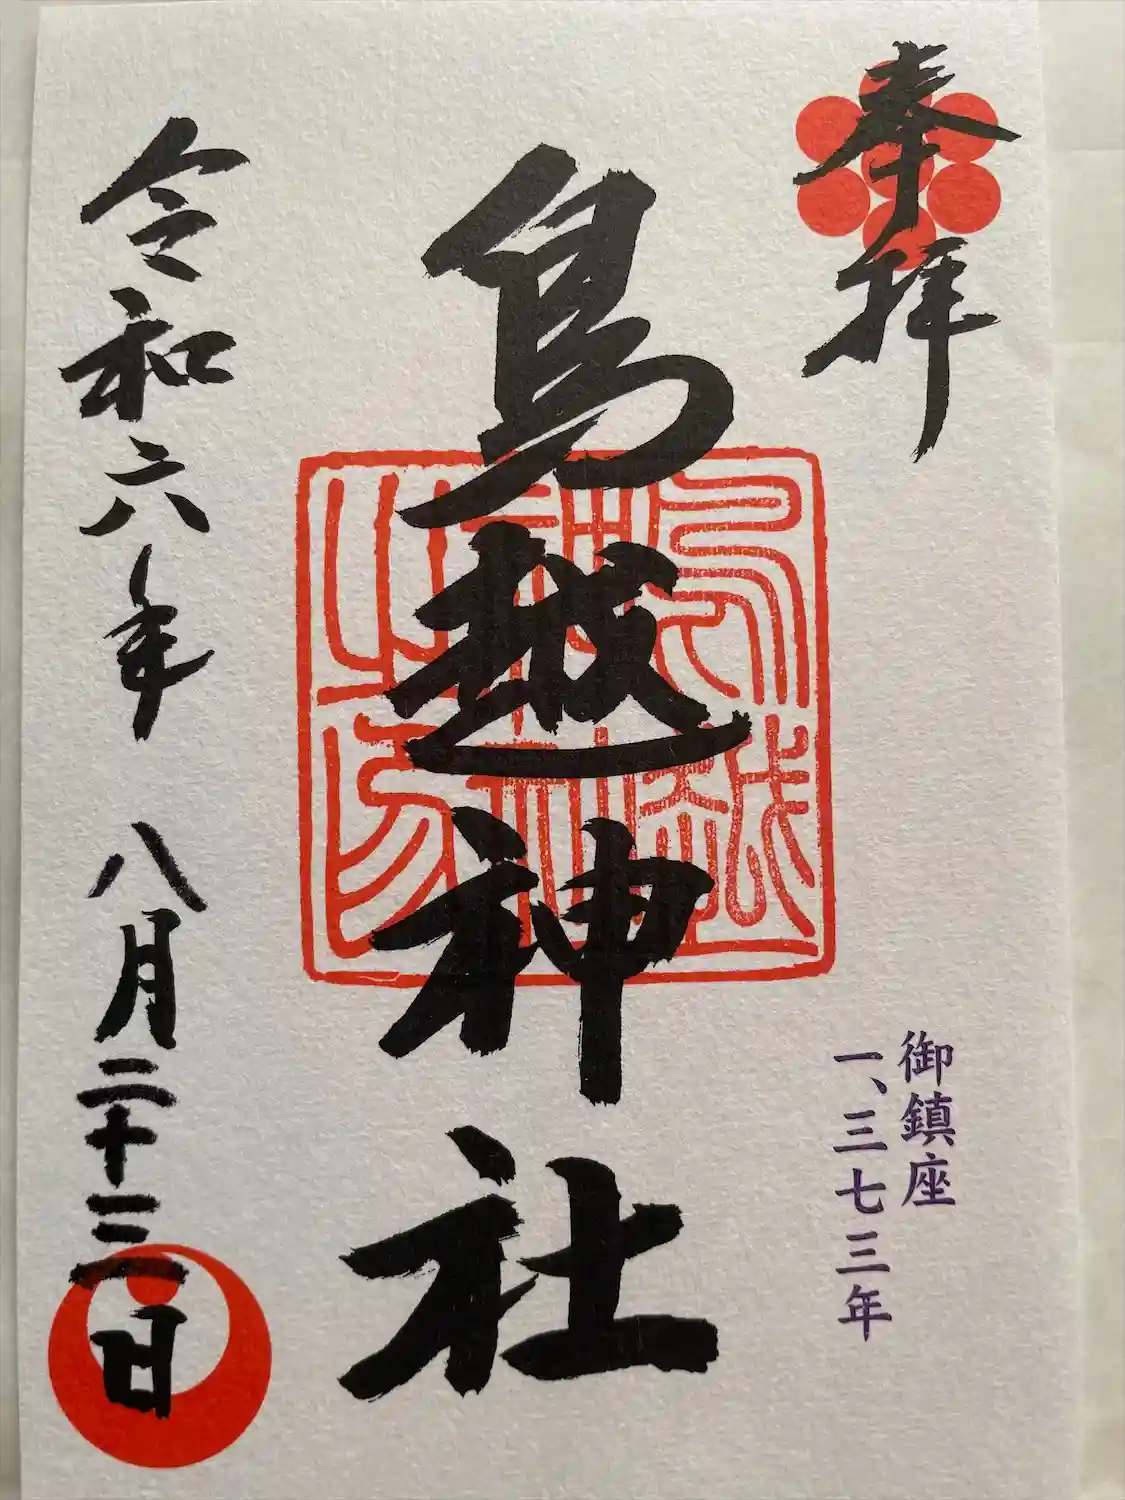 奉拝
御鎮座
一、三七三年
鳥越神社
鳥越
神社
之印
令和六年 八月二十三日